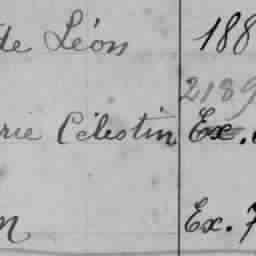 de Léon 188
2189
rie Célestin Ex.
n Ex. 7